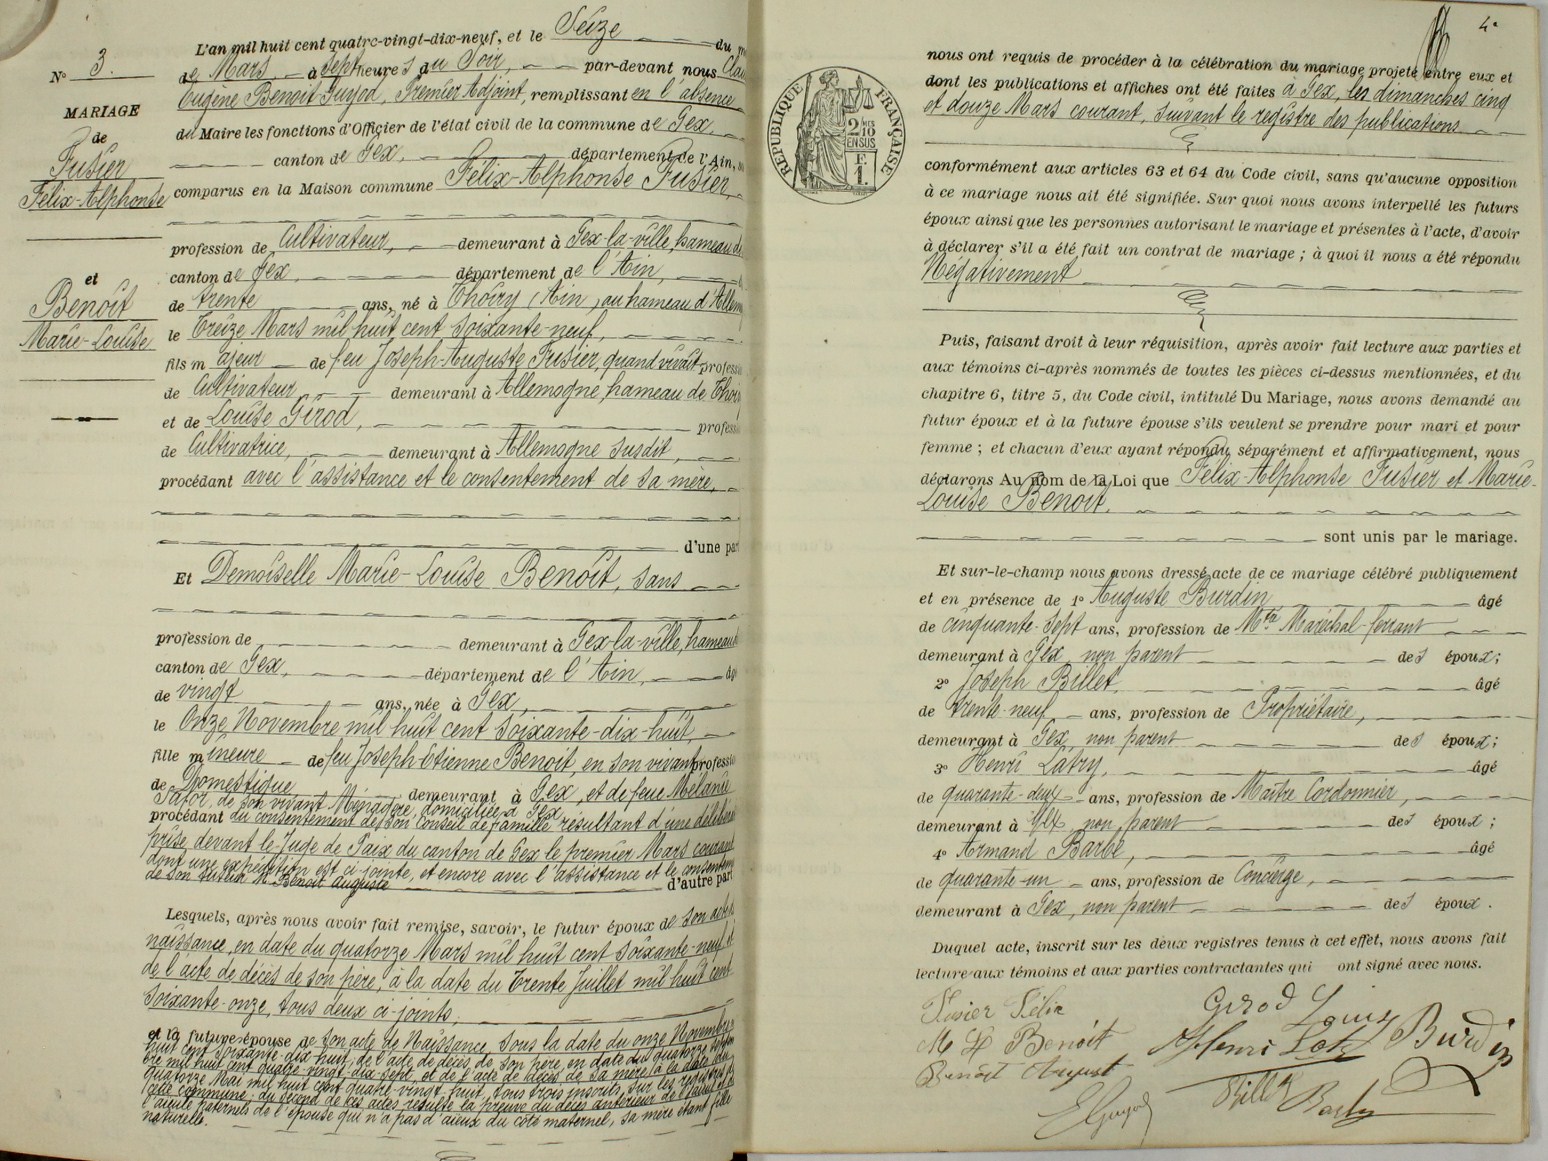 N° 3.
MARIAGE
de
Fusier
Félix-Alphonse
et
Benoît
Marie-Louise
L'an mil huit cent quatre-vingt-dix-neuf, et le Seize du
de Mars à Sept heures du Soir, par-devant nous
Eugène Benoit Guyod, Premier Adjoint, remplissant en l'absence
du Maire les fonctions d'Officier de l'état civil de la commune de Gex,
canton de Gex, département de l'Ain,
comparus en la Maison commune Félix-Alphonse Fusier,
profession de Cultivateur, demeurant à Gex-la-ville, hameau de
canton de Gex, département de l'Ain,
de trente ans, né à Thoiry (Ain) au hameau d'
le Treize Mars mil huit cent soixante-neuf,
fils majeur de feu Joseph-Auguste Fusier, quand vivait
de Cultivateur demeurant à Allemogne, hameau de
et de Louise Girod,
de Cultivatrice, demeurant à Allemogne susdit,
procédant avec l'assistance et le consentement de sa mère,
d'une part
Et Demoiselle Marie-Louise Benoît, sans
profession de demeurant à Gex-la-ville, hameau
canton de Gex, département de l'Ain,
de vingt ans, née à Gex,
le Onze Novembre mil huit cent soixante-dix-huit,
fille mineure de feu Joseph-Etienne Benoit, en son vivant
de Domestique, demeurant à Gex, et de feue Mélanie
de son vivant Ménagère, domiciliée à Gex
procédant du consentement de son Conseil de famille résultant d'une
prise devant le Juge de Paix du canton de Gex le premier Mars courant
dont une expédition est ci-jointe, et encore avec l'assistance et le
de son tuteur Mr Benoit Auguste d'autre part
Lesquels, après nous avoir fait remise, savoir, le futur époux de son acte de
naissance, en date du quatorze Mars mil huit cent soixante-neuf et
de l'acte de décès de son père, à la date du Trente Juillet mil huit cent
soixante-onze, tous deux ci-joints,
et la future épouse de son acte de Naissance sous la date du onze Novembre
huit cent soixante-dix-huit, de l'acte de décès de son père, en date du quatorze
mil huit cent quatre-vingt-dix-sept, et de l'acte de décès de sa mère à la date du
quatorze Mai mil huit cent quatre-vingt huit, tous trois inscrits sur les registres de
cette commune; du second de ces actes résulte la preuve du décès antérieur de l'aïeul et de
l'aïeule paternels de l'épouse qui n'a pas d'aïeux du côté maternel, sa mère étant fille
naturelle.
4e
nous ont requis de procéder à la célébration du mariage projeté entre eux et
dont les publications et affiches ont été faites à Gex, les dimanches cinq
et douze Mars courant, suivant le registre des publications
RÉPUBLIQUE FRANÇAISE
conformément aux articles 63 et 64 du Code civil, sans qu'aucune opposition
à ce mariage nous ait été signifiée. Sur quoi nous avons interpellé les futurs
époux ainsi que les personnes autorisant le mariage et présentes à l'acte, d'avoir
à déclarer s'il a été fait un contrat de mariage ; à quoi il nous a été répondu
Négativement
Puis, faisant droit à leur réquisition, après avoir fait lecture aux parties et
aux témoins ci-après nommés de toutes les pièces ci-dessus mentionnées, et du
chapitre 6, titre 5, du Code civil, intitulé Du Mariage, nous avons demandé au
futur époux et à la future épouse s'ils veulent se prendre pour mari et pour
femme ; et chacun d'eux ayant répondu séparément et affirmativement, nous
déclarons Au nom de la Loi que Félix-Alphonse Fusier et Marie-
Louise Benoit,
sont unis par le mariage.
Et sur-le-champ nous avons dressé acte de ce mariage célébré publiquement
et en présence de 1° Auguste Burdin âgé
de cinquante-sept ans, profession de Mtre Maréchal-ferrant
demeurant à Gex, non parent des époux;
2° Joseph Billet, âgé
de trente-neuf ans, profession de Propriétaire,
demeurant à Gex, non parent des époux;
3° Henri Latry, âgé
de quarante-deux ans, profession de Maître Cordonnier,
demeurant à Gex, non parent des époux ;
4° Armand Barbe, âgé
de quarante-un ans, profession de Concierge,
demeurant à Gex, non parent des époux.
Duquel acte, inscrit sur les deux registres tenus à cet effet, nous avons fait
lecture aux témoins et aux parties contractantes qui ont signé avec nous.
Fusier Félix
Girod Louise
M L Benoit
Henri
Burdin
Benoit August
Billet